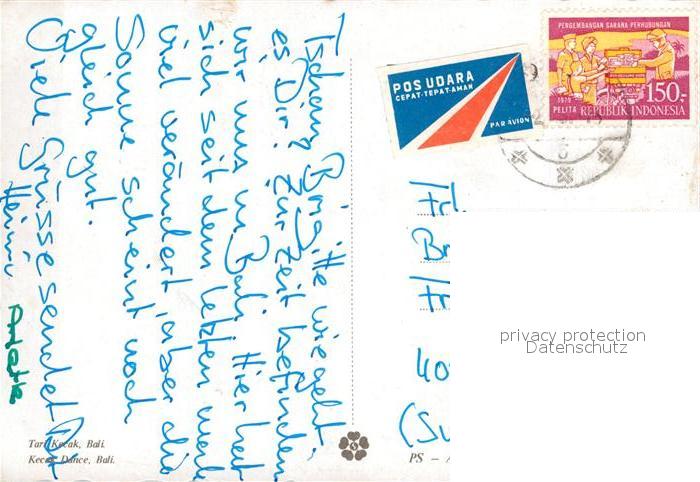 Tschau Brigitte wie geht
es Dir? Zur Zeit befinden
wir uns in Bali. Hier hat
sich seit dem letzten mal
viel verändert, aber die
Sonne scheint noch
gleich gut.
Viele Grüsse sendet Dir
Heinu
POS UDARA
CEPAT-TEPAT-AMAN
PAR AVION
PENGEMBANGAN SARANA PERHUBUNGAN
1979
PELITA
150.-
REPUBLIK INDONESIA
6
privacy protection
Datenschutz
40
(Su
Tari Kecak, Bali.
Kecak Dance, Bali.
PS –